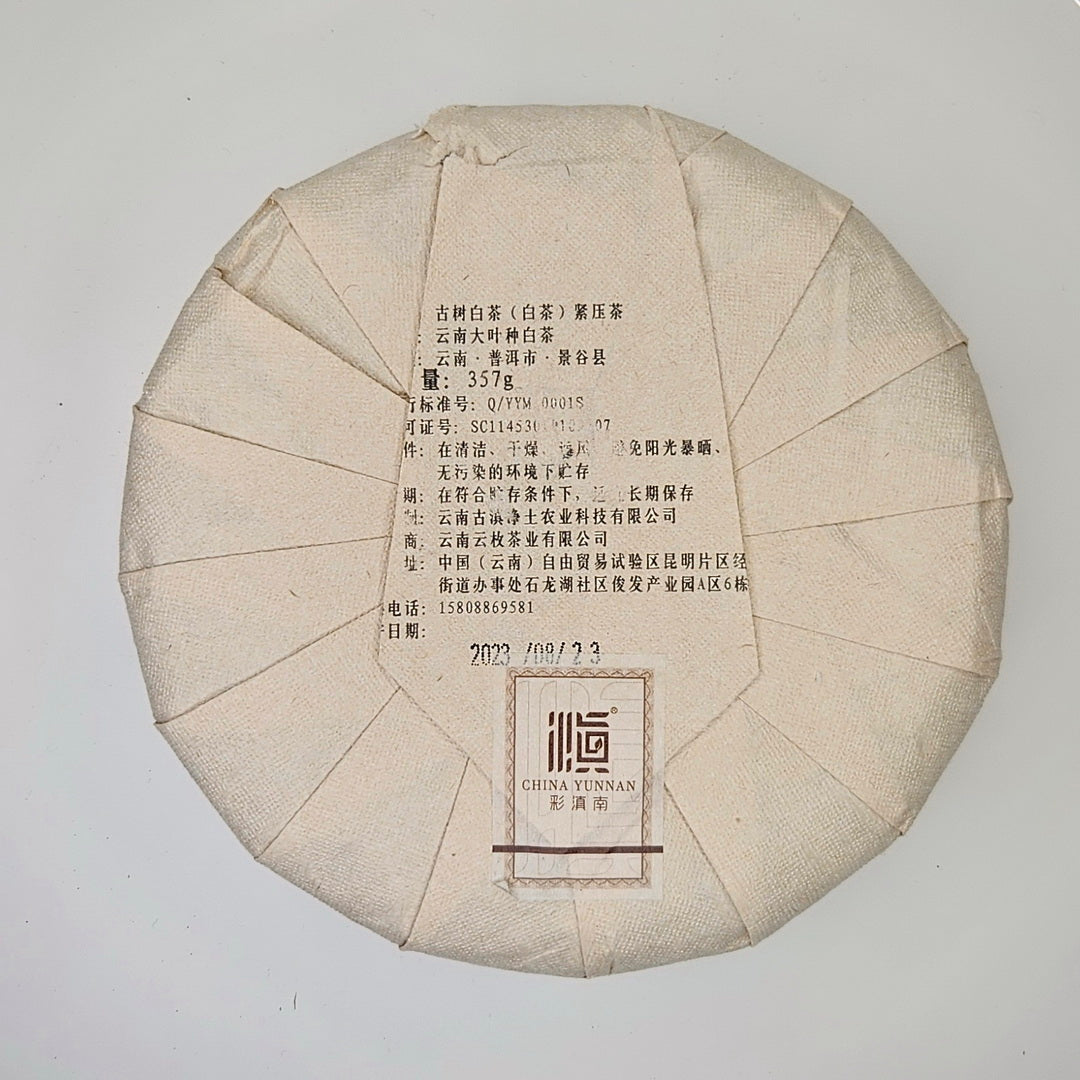 古树白茶（白茶）紧压茶
: 云南大叶种白茶
: 云南·普洱市·景谷县
量: 357g
标准号: Q/YYM 0001S
可证号: SC11453
件: 在清洁、干燥、避免阳光暴晒、
无污染的环境下贮存
期: 在符合贮存条件下, 长期保存
制: 云南古滇净土农业科技有限公司
商: 云南云枚茶业有限公司
址: 中国（云南）自由贸易试验区昆明片区经
街道办事处石龙湖社区俊发产业园A区6栋
电话: 15808869581
日期:
2023/08/23
滇®
CHINA YUNNAN
彩滇南